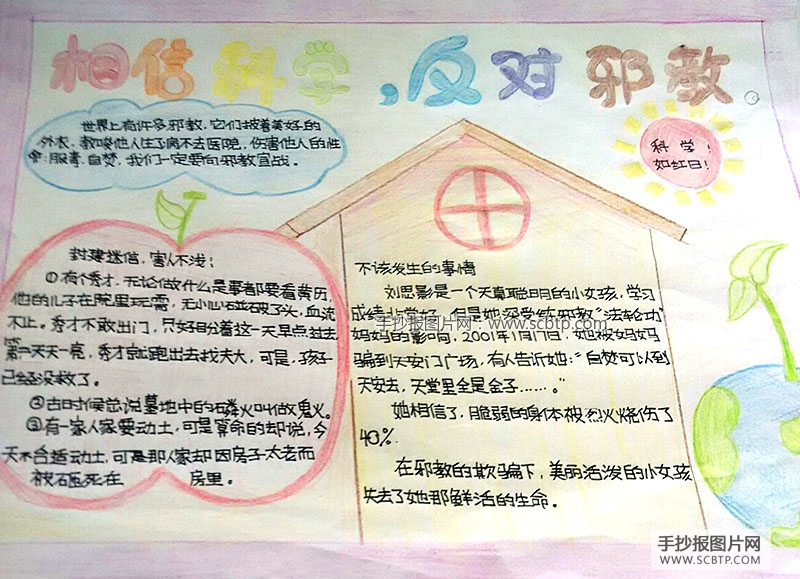 相信科学,反对邪教。
世界上有许多邪教,它们披着美好的
外衣,教唆他人生了病不去医院,伤害他人的性
命:服毒、自焚,我们一定要向邪教宣战。
科学!
如红日!
封建迷信,害人不浅!
①有个秀才,无论做什么是事都要看黄历,
他的儿子在院里玩耍,无小心碰破了头,血流
不止。秀才不敢出门,只好自分着这一天早点过去,
第二天天一亮,秀才就跑出去找大夫,可是,孩子
已经没救了。
②古时候总说墓地中的磷火叫做鬼火。
③有一家人家要动土,可是算命的却说,今
天不合适动土,可是那人家却因房子太老而
被砸死在 房里。
不该发生的事情
刘思影是一个天真聪明的小女孩,学习
成绩非常好,但是她深受练邪教"法轮功"
妈妈的影响,2001年1月17日,她被妈妈
骗到天安门广场,有人告诉她:"自焚可以到
天安去,天堂里全是金子……。"
她相信了,脆弱的身体被烈火烧伤了
40%.
在邪教的欺骗下,美丽活泼的小女孩
失去了她那鲜活的生命。
手抄报图片网:www.scbtp.com
手抄报图片网
WWW.SCBTP.COM